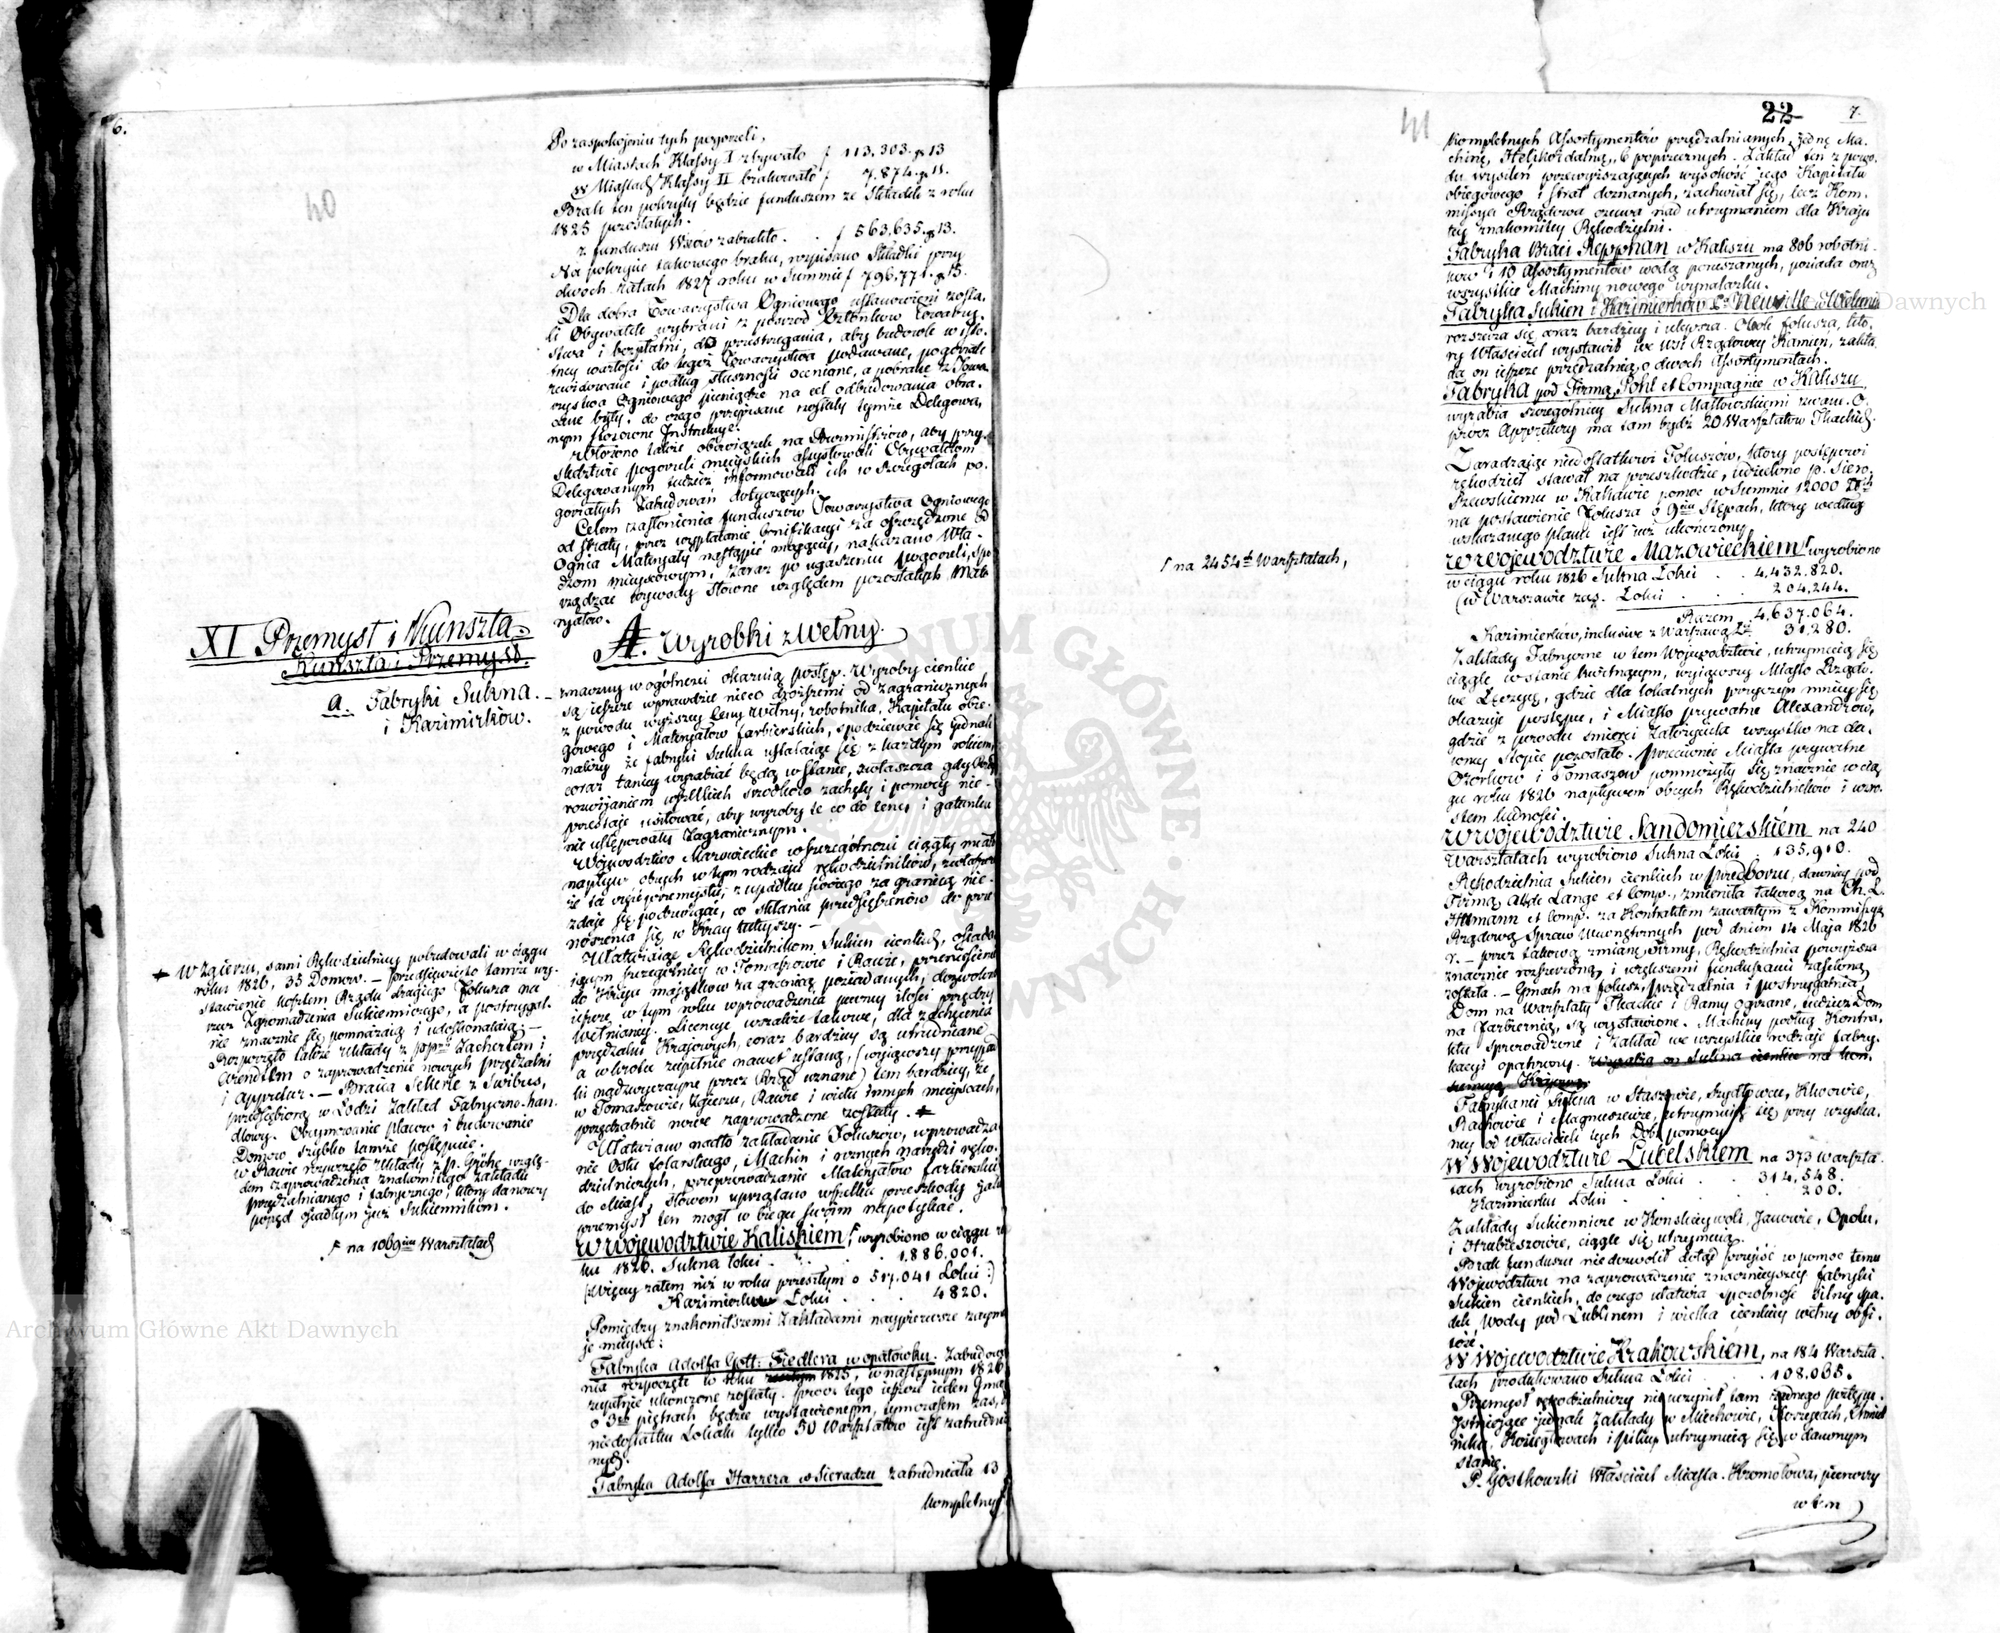 6.
40
Po zaspokojeniu tych pogorzeli,
w Miastach Klassy I zbywało f 113,303. gr 13
w Miastach Klassy II brakowało f 7.874. gr 11.
Brak ten pokryty będzie funduszem ze Składek z roku
1825 pozostałych.
z funduszu Wsiów zabrakło . . f 563,635. gr 13.
Na pokrycie takowego braku, rozpisano Składki przy
dwoch Ratach 1827 roku w Summie f 796.771. gr 15.
Dla dobra Towarzystwa Ogniowego ustanowieni zosta-
li Obywatele wybrani z pośród Członków Towarzy-
stwa i bezpłatni, do przestrzegania, aby budowle w isto-
tney wartości do tegoż Towarzystwa podawane, pogorzele
rewidowane i podług słuszności ocenione, a pobrane z Towa-
rzystwa Ogniowego pieniądze na cel odbudowania obra-
cane były, do czego przepisane zostały tymże Delegowa-
nym stosowne Instrukcye.
Włożono także obowiązek na Burmistrzów, aby przy
śledztwie pogorzeli mieyskich assystowali Obywatelom
Delegowanym tudzież informowali ich w szczegółach po-
gorzałych Zabudowań dotyczących.
Celem zasłonienia funduszów Towarzystwa Ogniowego
od straty, przez wypłacanie bonifikacyi za oszczędzone od
Ognia Materyały nastąpić mogącey, nakazano Wła-
dzom mieyscowym, zaraz po ugaszeniu pogorzeli, spo-
rządzać wywody słowne względem pozostałych Mate-
ryałów.
XI Przemysł i Kunszta.
Kunszta i Przemysł.
a. Fabryki Sukna.
i Kazimirków.
A. Wyrobki z Wełny.
znaczny w ogólności okazują postęp. Wyroby cienkie
są jeszcze wprawdzie nieco droższemi od zagranicznych
z powodu wyższey Ceny Wełny, robotnika, Kapitału obie-
gowego i Materyałow farbierskich, spodziewać się jednak
należy że fabryki Sukna ustalaiąc się z każdym rokiem,
coraz taniey wyrabiać będą w stanie, zwłaszcza gdy Rząd
rozwijaniem wszelkich środków zachęty i pomocy nie-
przestaje usiłować, aby wyroby te co do Ceny i gatunku
nie ustępowały Zagranicznym.
Woiewodztwo Mazowieckie w szczególności ciągły miało
napływ obcych w tym rodzaju rękodzielników, zwłaszcza
że ta część przemysłu, z upadku swoiego za granicą nie-
zdaje się podzwigać, co skłania przedsiębiorców do prze-
noszenia się w Kray tuteyszy. –
Ułatwiaiąc Rękodzielnikom Sukien cienkich, osiada-
jącym szczególniey w Tomaszowie i Rawie, przeniesienie
do Kraju majątków za granicą posiadanych, dozwolono
jeszcze w tym roku wprowadzenia pewney ilości przędzy
wełnianey. Licencye wszakże takowe, dla zachęcenia
przędzalni Krajowych, coraz bardziey są utrudniane
a wkrotce zupełnie nawet ustaną, (wyiąwszy przypad-
ki nadzwyczayne przez Rząd uznane) tem bardziey, że
w Tomaszowie, Zgierzu, Rawie i wielu innych mieyscach,
przędzalnie nowe zaprowadzone zostały. +
Ułatwiano nadto zakładanie Foluszów, wprowadza-
nie Ostu folarskiego, Machin i roznych narzędzi ręko-
dzielniczych, przeprowadzanie Materyałow farbierskich
do Miast, słowem uprzątano wszelkie przeszkody jakie
przemysł ten mogł w biegu swoim napotykać.
W Wojewodztwie Kaliskiem, f wyrobiono w ciągu ro-
ku 1826. Sukna łokci . . . 1.886.001.
(Więcey zatem niż w roku przeszłym o 517.041 Łokci :)
Kazimierków Łokci . . . 4820.
Pomiędzy znakomitszemi Zakładami naypierwsze zaymu-
je mieysce:
Fabryka Adolfa Gott: Fiedlera w opatówku. Zabudowa-
nia rozpoczęte w roku 1825, w następnym 1826
zupełnie ukończone zostały. Procz tego jeszcze jeden Gmach
o 3ch piętrach będzie wystawionym, tymczasem zaś, z
niedostatku Lokalu tylko 50 Warsztatow jest zatrudnio-
nych.
Fabryka Adolfa Harrera w Sieradzu zatrudniała 13
kompletnych
+ W Zgierzu, sami Rękodzielnicy pobudowali w ciągu
roku 1826, 35 Domow. – Przedsięwzięto tamże wy-
stawienie kosztem Rządu drugiego Folusza na
rzecz Zgromadzenia Sukienniczego, a postrzygal-
nie znacznie się pomnażaią i udoskonalaią. –
Rozpoczęto także Układy z pp. Zachertem i
Wendtem o zaprowadzenie nowych przędzalni
i Appretur. – Bracia Scherle z Świbus,
przedsiębiorą w Łodzi Zakład Fabryczno-han-
dlowy. Obeymowanie placow i budowanie
Domow szybko tamże postępuie.
w Rawie rozpoczęto układy z p. Göhe wzglę-
dem zaprowadzenia znakomitego Zakładu
przędzalnianego i fabrycznego, który da nowy
popęd osiadłym już Sukiennikom.
f na 1069ciu Warsztatach
22
7.
41
kompletnych Assortymentów przędzalnianych, jednę Ma-
chinę Helikoidalną, 6 poprzecznych. Zakład ten z powo-
du wysileń przewyższających wysokość jego Kapitału
obiegowego i strat doznanych, zachwiał się, lecz Kom-
missya Rządowa czuwa nad utrzymaniem dla Kraju
tey znakomitey Rękodzielni.
Fabryka Braci Repphan w Kaliszu ma 806 robotni-
kow i 10 Assortymentów wodą poruszanych, posiada oraz
wszystkie Machiny nowego wynalazku.
Fabryka Sukien i Kazimierków Le Neuville w Wieluniu
rozszerza się coraz bardziey i ulepsza. Obok folusza, któ-
ry Właściciel wystawił we Wsi Rządowey Kamień, zakła-
da on jeszcze przędzalnią o dwoch Assortymentach.
Fabryka pod Firmą Pohl et Compagnie w Kaliszu,
wyrabia szczególniey Sukna Małtowskiemi zwane. O-
procz Appretury ma tam bydź 20 Warsztatow Tkackich.
Zaradzając niedostatkowi Foluszów, który postępowi
rękodzieł stawał na przeszkodzie, udzielono p. Siero-
szewskiemu w Kaliszu pomoc w Summie 12000 Złch
na postawienie Folusza o 9ciu Stępach, który według
wskazanego planu jest już ukończony.
W Wojewodztwie Mazowieckiem f wyrobiono
w ciągu roku 1826 Sukna Łokci . . . 4,432.820.
(w Warszawie zaś. Łokci . . . 204,244.
Razem 4,637.064.
Kazimierków, inclusive z Warszawą Łci 31,280.
Zakłady Fabryczne w tem Wojewodztwie, utrzymują się
ciągle w stanie kwitnącym, wyiąwszy Miasto Rządo-
we Łęczycę, gdzie dla lokalnych przyczyn mniey się
okazuje postępu, i Miasto prywatne Alexandrow,
gdzie z powodu śmierci Założyciela wszystko na da-
wney stopie pozostało. Przeciwnie Miasta prywatne
Ozorków i Tomaszow pomnożyły się znacznie w cią-
gu roku 1826 napływem obcych Rękodzielników i wzro-
stem ludności.
W Wojewodztwie Sandomierskiem na 240
Warsztatach wyrobiono Sukna Łokci . 135,910.
Rękodzielnia Sukien cienkich w Przedborzu, dawniey pod
Firmą Alde Lange et Comp., zmieniła takową na Ch. L.
Ittmann et Comp. za Kontraktem zawartym z Kommissyą
Rządową Spraw Wewnętrznych pod dniem 14 Maja 1826
r. – przez takową zmianę Firmy, Rękodzielnia powyższa
znacznie rozszerzoną i większemi funduszami zasiloną
została. – Gmach na folusz, przędzalnia i postrzygalnia,
Dom na Warsztaty Tkackie i Ramy ogrzane, tudzież Dom
na farbiernią, są wystawione. Machiny podług Kontra-
ktu sprowadzone i Zakład we wszystkie rodzaje fabry-
kacyi opatrzony. Wyrabia on Sukna cienkie na kon-
sumcyą Krajową.
Fabrykanci Sukna w Staszowie, Szydłowcu, Klwowie,
Rachowie i Magnuszewie, utrzymują się przy uzyska-
ney od Właścicieli tych Dobr pomocy.
W Wojewodztwie Lubelskiem na 373 Warszta-
tach wyrobiono Sukna Łokci . . 314,548.
Kazimierku Łokci . . . 200.
Zakłady Sukiennicze w Konskiejwoli, Janowie, Opolu,
i Hrubieszowie, ciągle się utrzymują.
Brak funduszu niedozwolił dotąd przyjść w pomoc temu
Wojewodztwu na zaprowadzenie znacznieyszey fabryki
Sukien cienkich, do czego ułatwia sposobność silnie spa-
dek Wody pod Lublinem i wielka cienkiey wełny obfi-
tość.
W Wojewodztwie Krakowskiem, na 184 Warszta-
tach produkowano Sukna Łokci . . 108.035.
Przemysł rękodzielniczy nie uczynił tam żadnego postępu.
Istniejące jednak Zakłady w Miechowie, Koziegłowach i Pilicy utrzymują się w dawnym
stanie.
P. Gostkowski Właściciel Miasta Kromołowa, pierwszy
w tem
f na 2454ch Warsztatach,
ARCHIWUM GŁÓWNE AKT DAWNYCH
Archiwum Główne Akt Dawnych